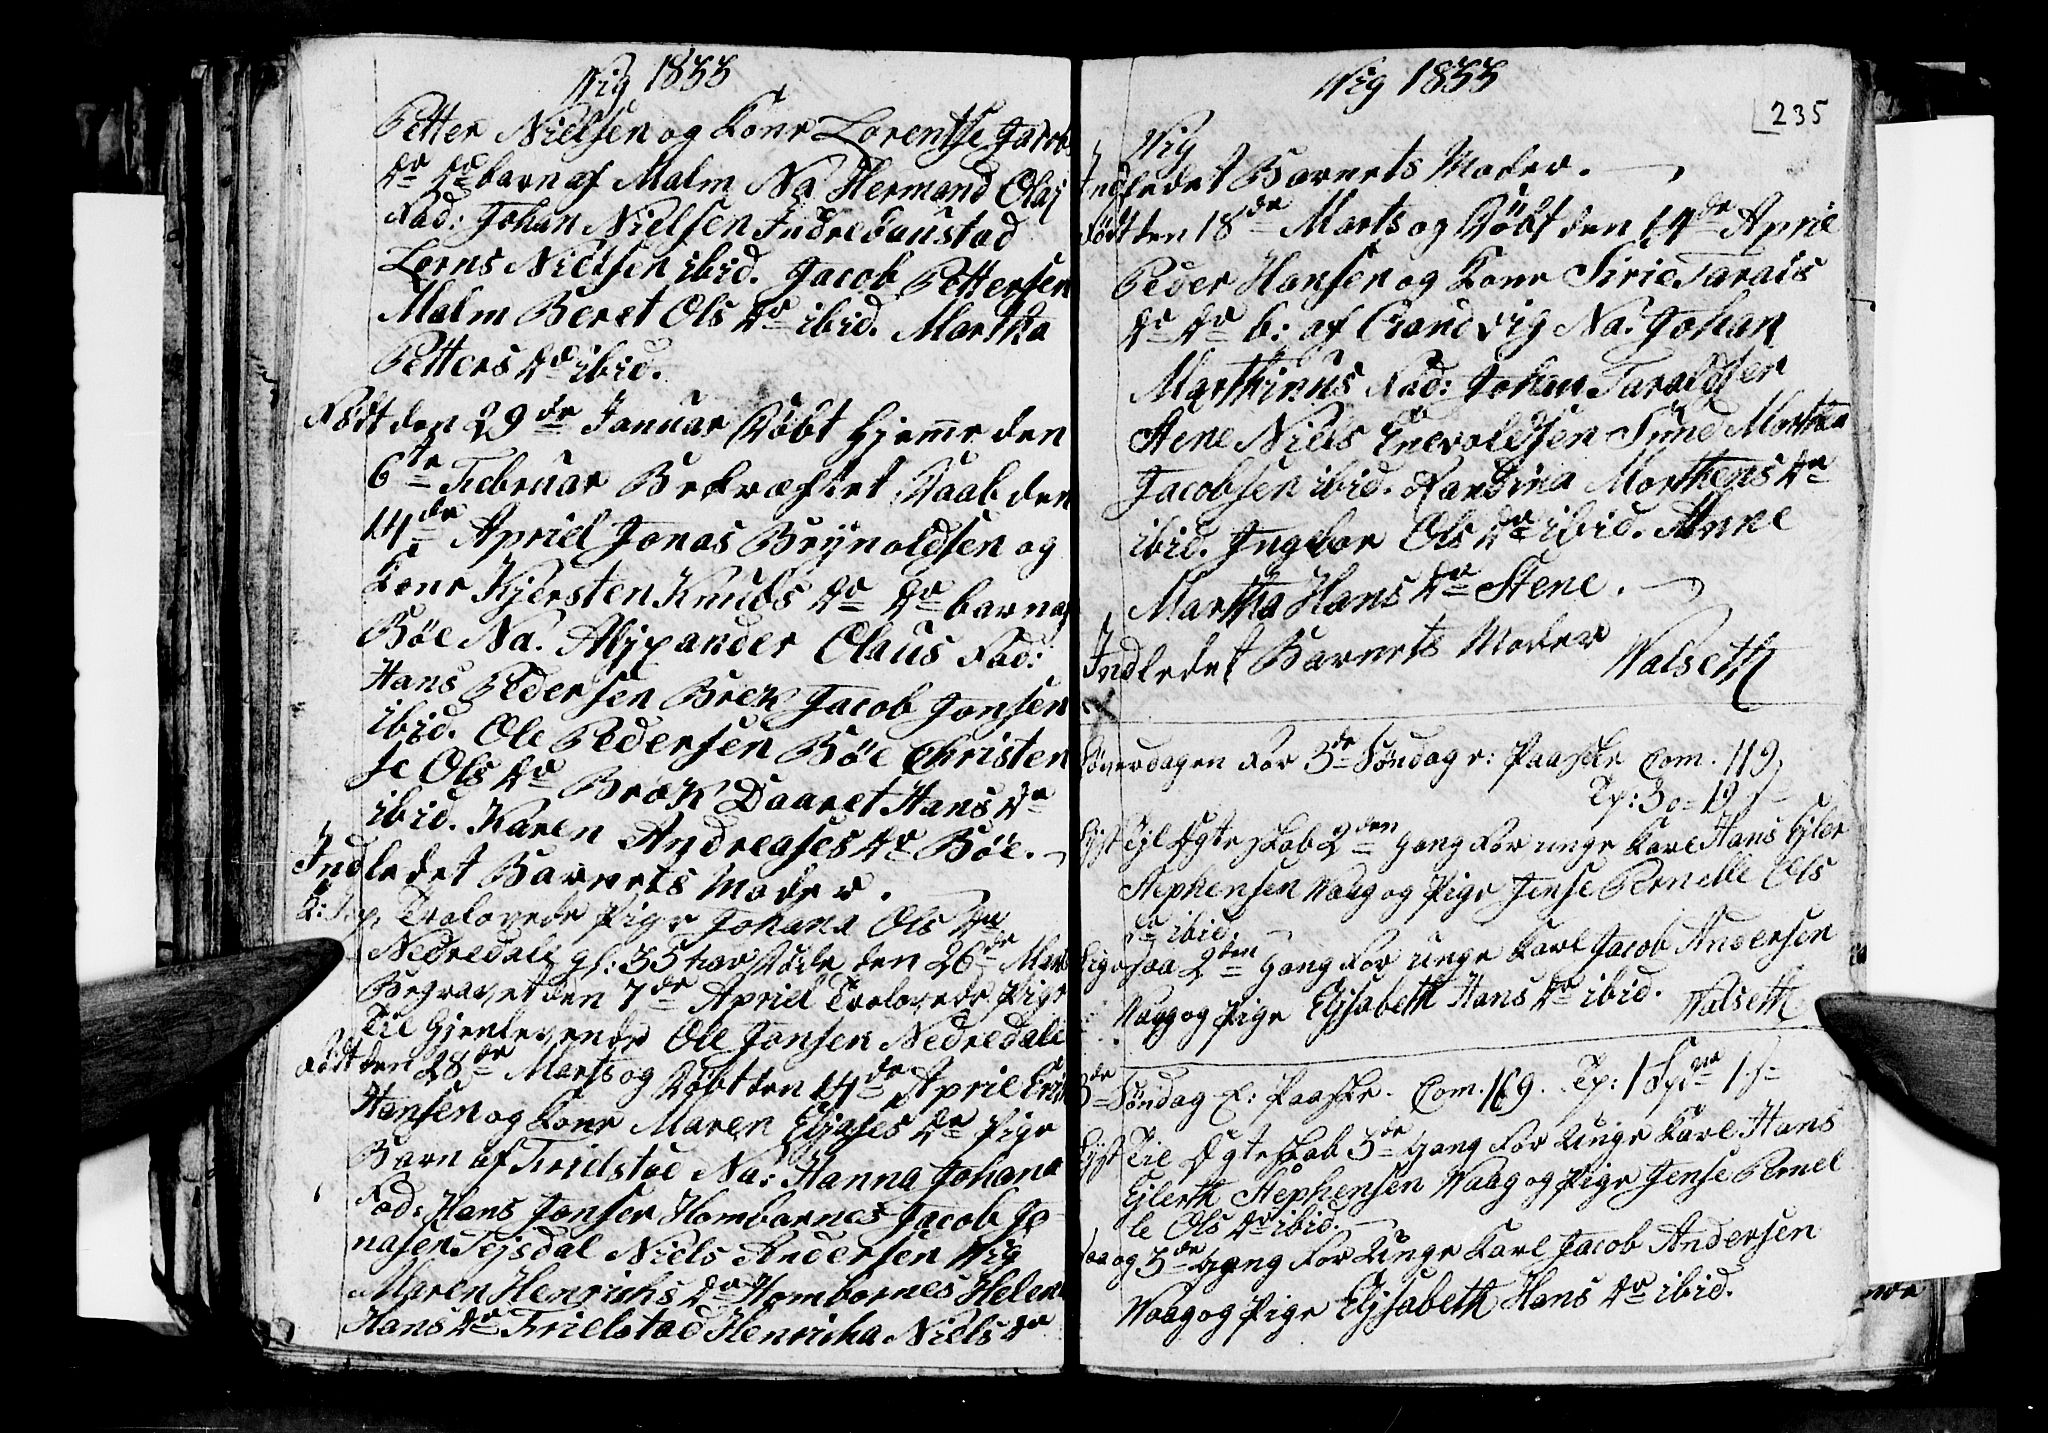 Wig 1833
Petter Nielsen og Kone Lorentse Jacobs
dr. dr. barn af Malm Na. Hermand Olaj
Fad: Johan Nielsen Indre Faustad
Lorns Nielsen ibid. Jacob Pettersen
Malm Beret Ols dr ibid. Martha
Petters dr ibid.
Født den 29de Januar Døbt Hjemme den
6te Februar Bekræftet Daab den
14de Apriel Jonas Brynoldsen og
Kone Kjersten Knuds dr dr barn af
Böe Na. Alexander Olaus Fad:
Hans Pedersen Brek Jacob Jonsen
ibid. Ole Pedersen Böe Christen
se Ols dr Bræk Daaret Hans dr
ibid. Karen Andreases dr Böe.
Indledet Barnets Moder.
Trolovede Pige Johana Ols dr
Nedredale gl: 35 Aar Döde den 26de Mar
Begravet den 7de Apriel Trolovede Pige
Til Gjenlevende Ole Jonsen Nedredale
Født den 28de Marts og Döbt den 14de April Erik
Hansen og Kone Maren Elljases dr Pige
Barn af Frielstad Na: Hanna Johana
Fad: Hans Jonsen Hombornes Jacob Jo-
nasen Tejsdal Niels Andersen Wig
Maren Henrichs dr Hombornes Helena
Hans dr Frielstad Henricha Niels dr
Wig 1833
235
Wig
Indledet Barnets Moder.
Født den 18de Marts og Döbt den 14de April
Peder Hansen og Kone Sirie Tarals
dr dr b: af Crandvig Na. Johan
Marthinus Fad: Johan Taraldsen
Stene Niels Enevoldsen Sund Morten
Jacobsen ibid. Randina Morthens dr
ibid. Ingebor Ols dr ibid. Anne
Martha Hans dr Stene.
Indledet Barnets Moder Walseth
Löverdagen For 3de Söndag e: Paaske Com. 119.
Tp: 30 = 19 s
Lyst Til Ægteskab 2den Gang For unge Karl Hans Ejler
Stephensen Waag og Pige Jense Pernelle Ols
dr ibid.
Ligesaa 2den Gang For unge Karl Jacob Andersen
Waag og Pige Elisabeth Hans dr ibid. Walseth
3de Söndag E: Paaske. Com. 169. Tp: 1 Spe 1 s
Lyst Til Ægteskab 3de Gang For Unge Karl Hans
Ejlerth Stephensen Waag og Pige Jense Pernel
le Ols dr ibid.
Saa og 3de Gang For Unge Karl Jacob Andersen
Waag og Pige Elisabeth Hans dr ibid.